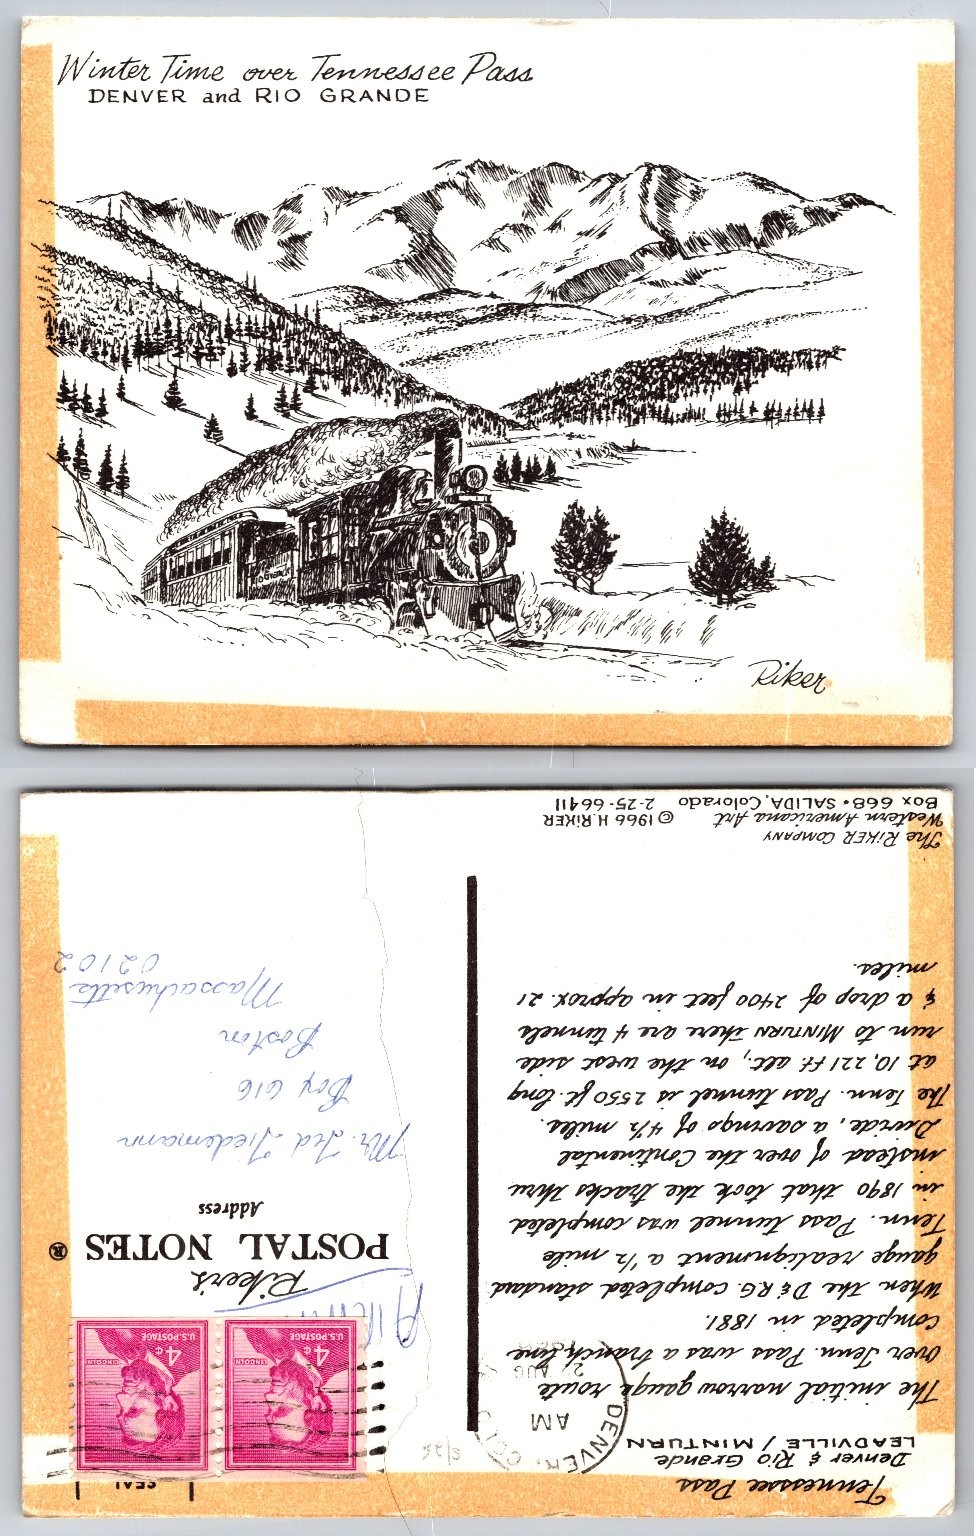 Winter Time over Tennessee Pass
DENVER and RIO GRANDE
Riker
Tennessee Pass
Denver & Rio Grande
LEADVILLE / MINTURN
The initial narrow gauge route
over Tenn. Pass was a branch line
completed in 1881.
When the D&RG. completed standard
gauge realignment a ½ mile
Tenn. Pass tunnel was completed
in 1890 that took the tracks thru
instead of over the Continental
Divide, a savings of 4½ miles.
The Tenn. Pass tunnel is 2550 ft. long
at 10,221 ft alt., on the west side
run to MINTURN There are 4 tunnels
& a drop of 2400 feet in approx. 21
miles.
The RIKER COMPANY
Western Americana Art © 1966 H. RIKER
Box 668 • SALIDA, Colorado 2-25-66411
SEAL
DENVER, COLO
AM
AUG
5/25
U.S. POSTAGE
4¢
LINCOLN
U.S. POSTAGE
4¢
LINCOLN
Riker's
POSTAL NOTES ®
Address
Mr. Ted Tiedemann
Box 616
Boston
Massachusetts
02102